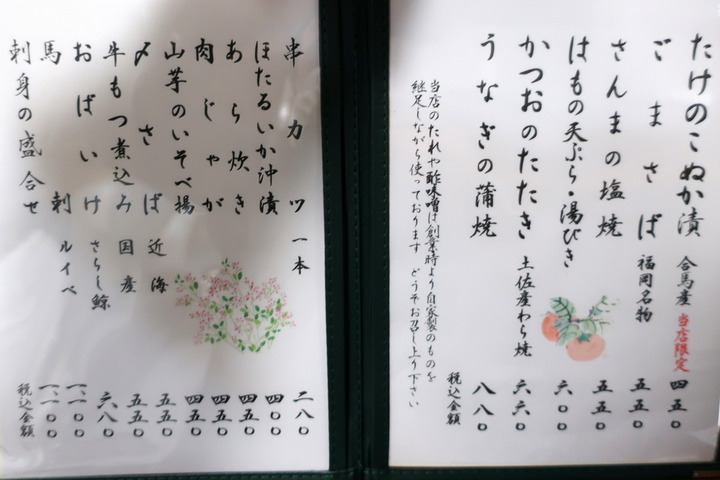 たけのこぬか漬 合馬産 当店限定 四五〇
ごまさば 福岡名物 五五〇
さんまの塩焼 五五〇
はもの天ぷら・湯びき 六〇〇
かつおのたたき 土佐産わら焼 六六〇
うなぎの蒲焼 八八〇
税込金額
当店のたれや酢味噌は創業時より自家製のものを
継足しながら使っております どうぞお召し上り下さい
串カツ 一本 二八〇
ほたるいか沖漬 四〇〇
あら炊き 四五〇
肉じゃが 四五〇
山芋のいそべ揚 四五〇
〆さば 近海 五五〇
牛もつ煮込み 国産 五五〇
おばいけ さらし鯨 六八〇
馬刺 ルイベ 一一〇〇
刺身の盛合せ 一一〇〇
税込金額